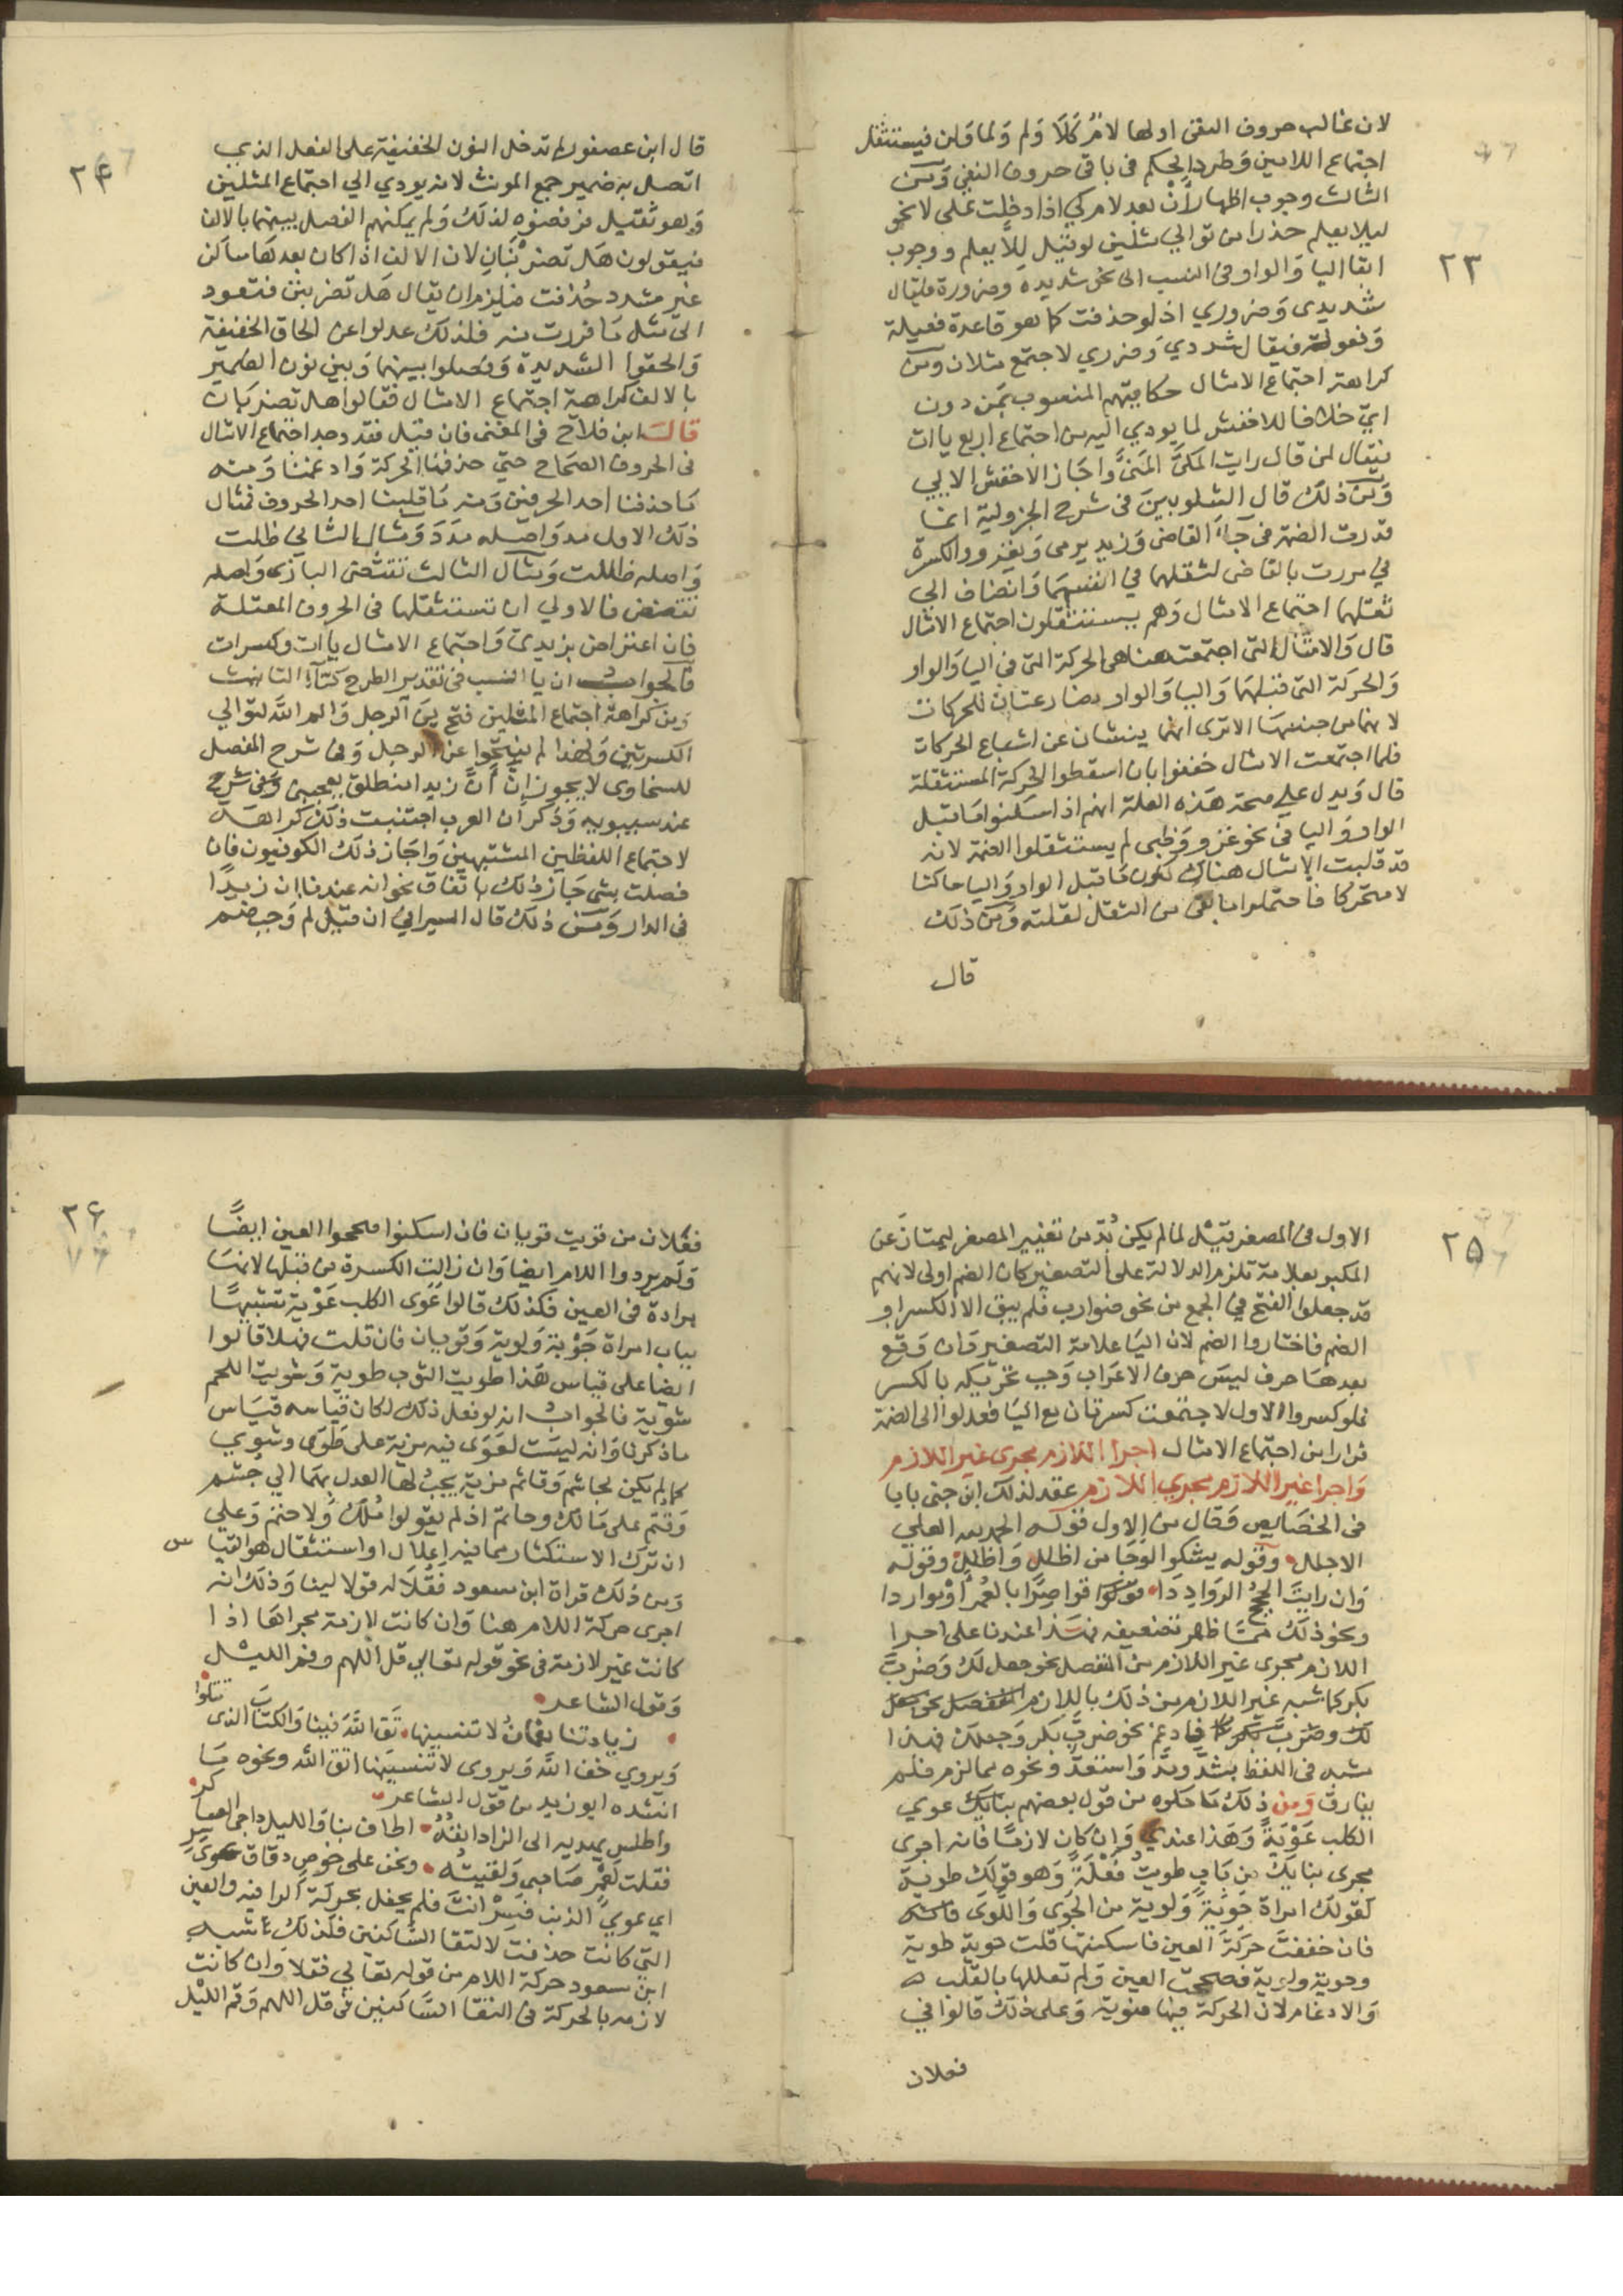 ٢٣
لان غالب حروف النفى اولها لام كَلَا وَلم وَلما وَلن فيستثقل
اجتماع اللامين وَطرد الحكم فى باقى حروف النفى وَمن
الثالث وجوب اظهار أَنْ بعد لام كي اذا دخلت على لا نحو
ليلا يعلم حذرا من توالي مثلين لو قيل لِلَّا يعلم ووجوب
ابقا اليا وَالواو فى النسب الى نحو شديدة وضرورة فيقال
شديدى وَضروري اذ لو حذفت كما هو قاعدة فعيلة
وَفعولة فيقال شددي وَضرري لاجتمع مثلان ومن
كراهة اجتماع الامثال حكايتهم المنصوب بمَن دون
ايّ خلافا للاخفش لما يودي اليه من اجتماع اربع يات
فيقال لمن قال رايت المكيَّ المنيَّ وَاجَاز الاخفش الاييي
وَمن ذلك قال الشلوبين فى شرح الجزولية انما
قدرت الضمة فى جآء القاضى وَزيد يرمى وَيغزو والكسرة
في مررت بالقاضى لثقلها في انفسهما وَانضاف الى
ثقلها اجتماع الامثال وَهم يستثقلون اجتماع الامثال
قال وَالامثال التى اجتمعت هنا هى الحركة التى فى اليا وَالواو
وَالحركة التى قبلهَا وَاليا وَالواو مضارعتان للحركات
لانهما من جنسهَا الا ترى انهما ينشئان عن اشباع الحركات
فلما اجتمعت الامثال خففوا بان اسقطوا الحركة المستثقلة
قال وَيدل على صحة هَذه العلة انهم اذا سكنوا مَا قبل
الواو وَاليا فى نحو غزو وَظبى لم يستثقلوا الضمة لانه
قد قلت الامثال هناك لكون مَا قبل الواو وَاليا ساكنا
لا متحركا فاحتملوا ما بقى من الثقل لقلته وَمن ذلك
قال
٢٤
قال ابن عصفور لم تدخل النون الخفيفة على الفعل الذي
اتصل به ضمير جمع المونث لانه يودي الي اجتماع المثلين
وَهو ثقيل فرفضوه لذلك وَلم يمكنهم الفصل بينهما بالالف
فيقولون هَل تضرْبنَانِ لان الالف اذا كان بعدهَا ساكن
غير مشدد حُذفت فيلزم ان يقال هَل تضربنن فتعود
الى مثل مَا فررت منه فلذلك عدلوا عن الحاق الخفيفة
وَالحقوا الشديدة وَفصلوا بينهما وَبين نون الضمير
بالالف كراهة اجتماع الامثال فقالوا هل تضربنان
قال ابن فلاح فى المغنى فان قيل فقد وجد اجتماع الامثال
فى الحروف الصحاح حتى حذفنا الحركة وَادغمنا وَمنه
مَا حذفنا احد الحرفين وَمنه مَا قلبنا احد الحروف فمثال
ذلك الاول مد وَاصله مَدَدَ وَمثال الثانى ظلت
وَاصله ظللت وَمثال الثالث تقضى البازى وَاصله
تقضض فالاولي ان تستثقلها فى الحروف المعتلة
فان اعترض بزيدىّ وَاجتماع الامثال ياات وكسرات
فالجواب ان يا النسب فى تقدير الطرح كتآء التانيث
وَمن كراهة اجتماع المثلين فتح مِنَ الرجل وَالم الله لتوالي
الكسرتين وَلهذا لم يفتحوا عن الرجل وَفى شرح المفصل
للسخاوى لا يجوز اِنّ أَنّ زيدا منطلق يعجبنى وَفى شرح
عند سيبويه وَذكر ان العرب اجتنبت ذلك كراهة
لاجتماع اللفظين المشتبهين وَاجَاز ذلك الكوفيون فان
فصلت بشى جَاز ذلك باتفاق نحو ان عندنا ان زيدًا
فى الدار وَمن ذلك قال السيرافي ان قيل لم وَجب ضم
٢٥
الاول فى المصغر قيل لما لم يكن بُدّ من تغيير المصغر ليمتاز عَن
المكبر بعلامة تلزم الدلالة على التصغير كان الضم اولى لانهم
قد جعلوا الفتح في الجمع من نحو ضوارب فلم يبق الا الكسر او
الضم فاختاروا الضم لان اليَا علامة التصغير وَان وَقع
بعدهَا حرف ليسَ حرف الاعرَاب وَجب تحريكه بالكسر
فلو كسروا الاول لاجتمعت كسرتان مع اليَا فعدلوا الى الضمة
فرارا من اجتماع الامثال اجرا اللازم مجرى غير اللازم
وَاجرا غير اللازم مجري اللازم عقد لذلك ابن جنى بابا
فى الخصَايص فقال من الاول قوله الحمد لله العلي
الاجلل وَقوله يشكوا الوجَا من اظلل وَاظلل وقوله
وَان رايتَ الحِجج الرَوادِدَا قواصِرًا بالعُمر أوموارِدا
ونحو ذلك ممّا ظهر تضعيفه فهَذا عندنا على اجرا
اللازم مجرى غير اللازم من المنفصل نحو جعل لك وَضربَ
بكر كما شبه غير اللازم من ذلك باللازم المنفصل نحو جعل
لك وضربَ بكر فادغم نحو ضربّ بكر وَجعلّك فهذا
شبه فى اللفظ بشدّ ومدّ وَاستعدّ ونحوه مما لزم فلم
يفارق وَمن ذلك مَا حكوه من قول بعضهم عوي
الكلب عَوْيَةً وَهَذا عندي وَان كان لازمًا فانه اجرى
مجرى بنايك من باب طويتُ فَعْلَةً وَهو قولك طوية
كقولك امراة جَوْيَةً وَلوية من الجَوَى وَاللَّوَى
فان خففتَ حركَةَ العين فاسكنتها قلت طوية
وجوية ولوية فصححت العين وَلم تعلها بالقلب
وَالادغام لان الحركة فيها منوية وَعلى ذلك قالوا في
فعلان
٢٦
فعُلان من قويت قويان فان اسكنوا صححوا العين ايضًا
وَلَم يردوا اللام ايضا وَان زالت الكسرة من قبلها لانهَا
مرادة فى العين فكذلك قالوا عَوى الكلب عَوْية تشبيهًا
بباب امراة جَوْية وَلوية وَقويان فان قلت فهلا قالوا
ايضا على قياس هَذا طويت الثوب طوية وَشويت اللحم
شوية فالجوابُ انه لو فعل ذلك لكان قياسه قيَاس
ماذكرنا وَانه ليسَت لعَوَى فيه مزية على طَوَى وشوي
كما لم يكن لجاشم وَقاثم مزية يجبُ لها العدل بهمَا الي جُشم
وَقُثم على مَالك وحاتم اذ لم يقولوا مُلَك وَلا حتم وَعلى
ان تَرك الاستكثار مما فيه اعلال او استثقال هو القيَا س
وَمن ذلك قراة ابن مسعود فقُلَا له قولا لينا وَذلك انه
اجرى حركة اللام هنا وَان كانت لازمة مجراهَا اذا
كانت غير لازمة فى نحو قوله تعالي قل اللهم وقم الليل
وَقول الشاعر
زيادتنا نعمَانُ لا تنسينها تَقِ اللهَ فينا وَالكتابَ الذى تتلوا
وَيروي خف الله وَيروى لا تنسيَنها اتق الله ونحوه مَا
انشده ابو زيد من قول الشاعر
واطلس يهديه الى الزاد انفُهُ اطاف بنا وَالليل داجى العساكر
فقلت لعَمْرٍ صَاحبى وَلقيتُه ونحن على خوص دقاق عَوَى سِر
اي عوىَ الذيب فَسِرْ انتَ فلم يحفل بحركة الرا فيه والعين
التي كانت حذفت لالتقا السَّاكنين فكذلك شبه
ابن سعود حركة اللام من قوله تعالي فقلا وَان كانت
لازمه بالحركة فى التقا السَّاكنين فى قل اللهم وَقم الليْل